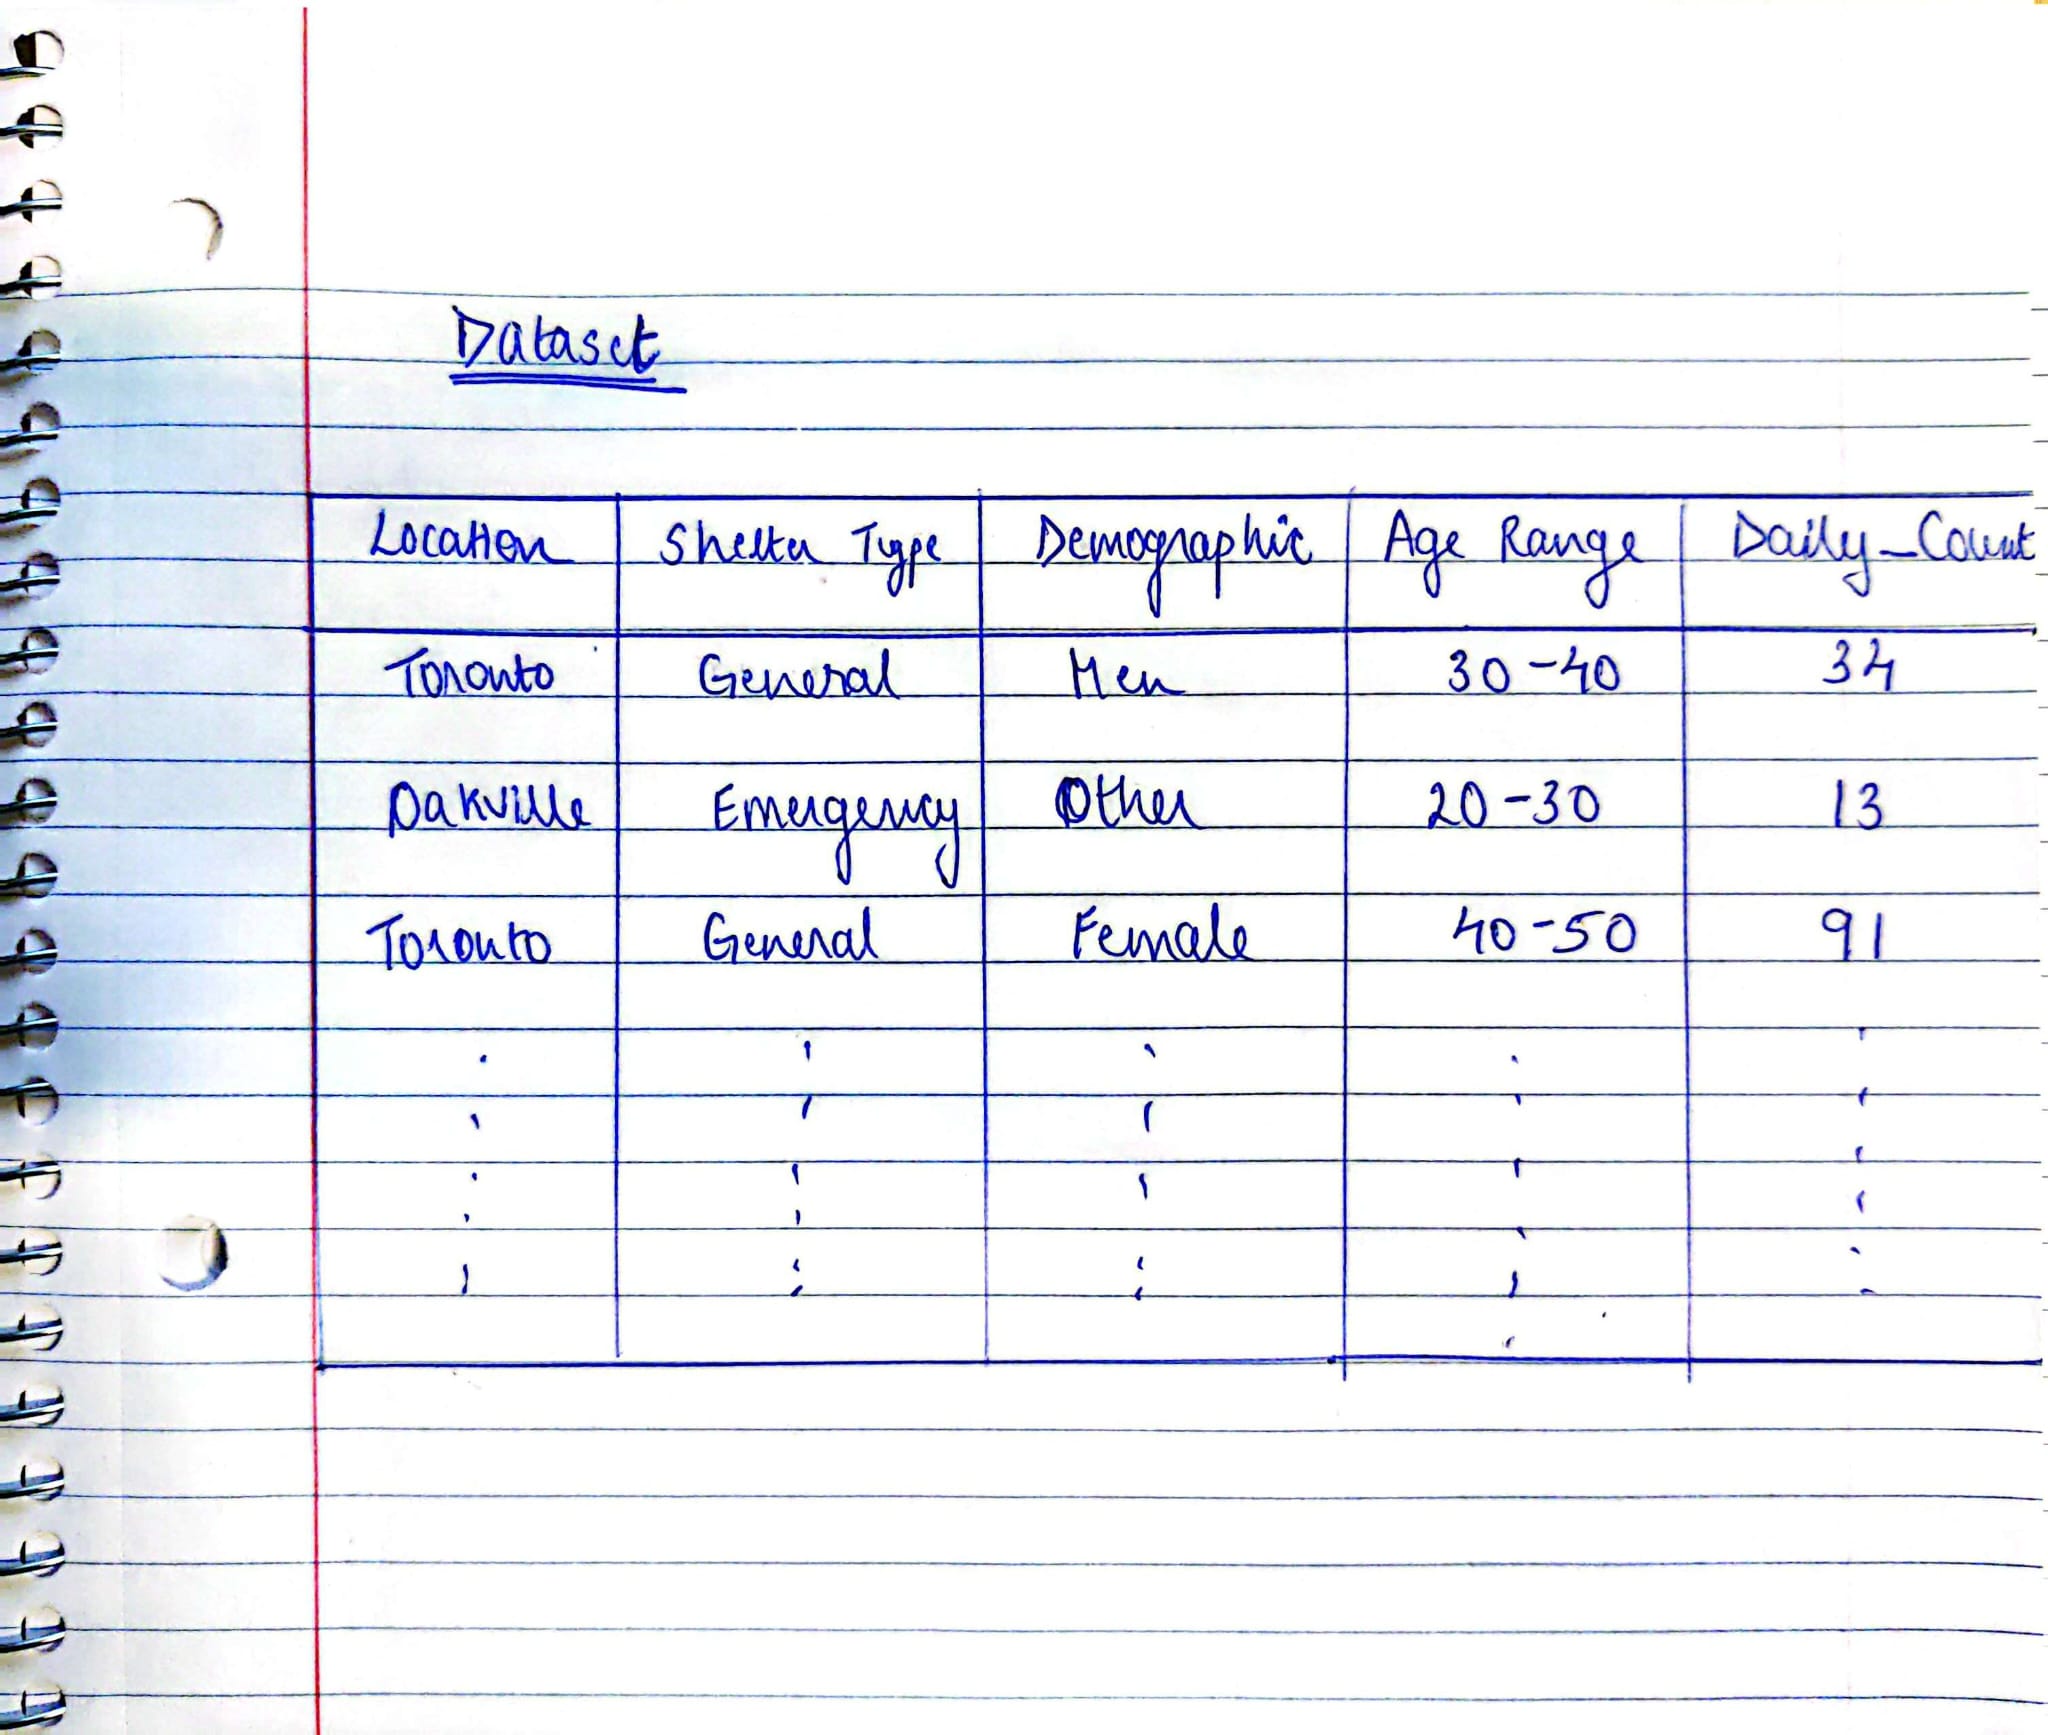 Dataset
Location Shelter Type Demographic Age Range Daily_Count
Toronto General Men 30-40 34
Oakville Emergency Other 20-30 13
Toronto General Female 40-50 91